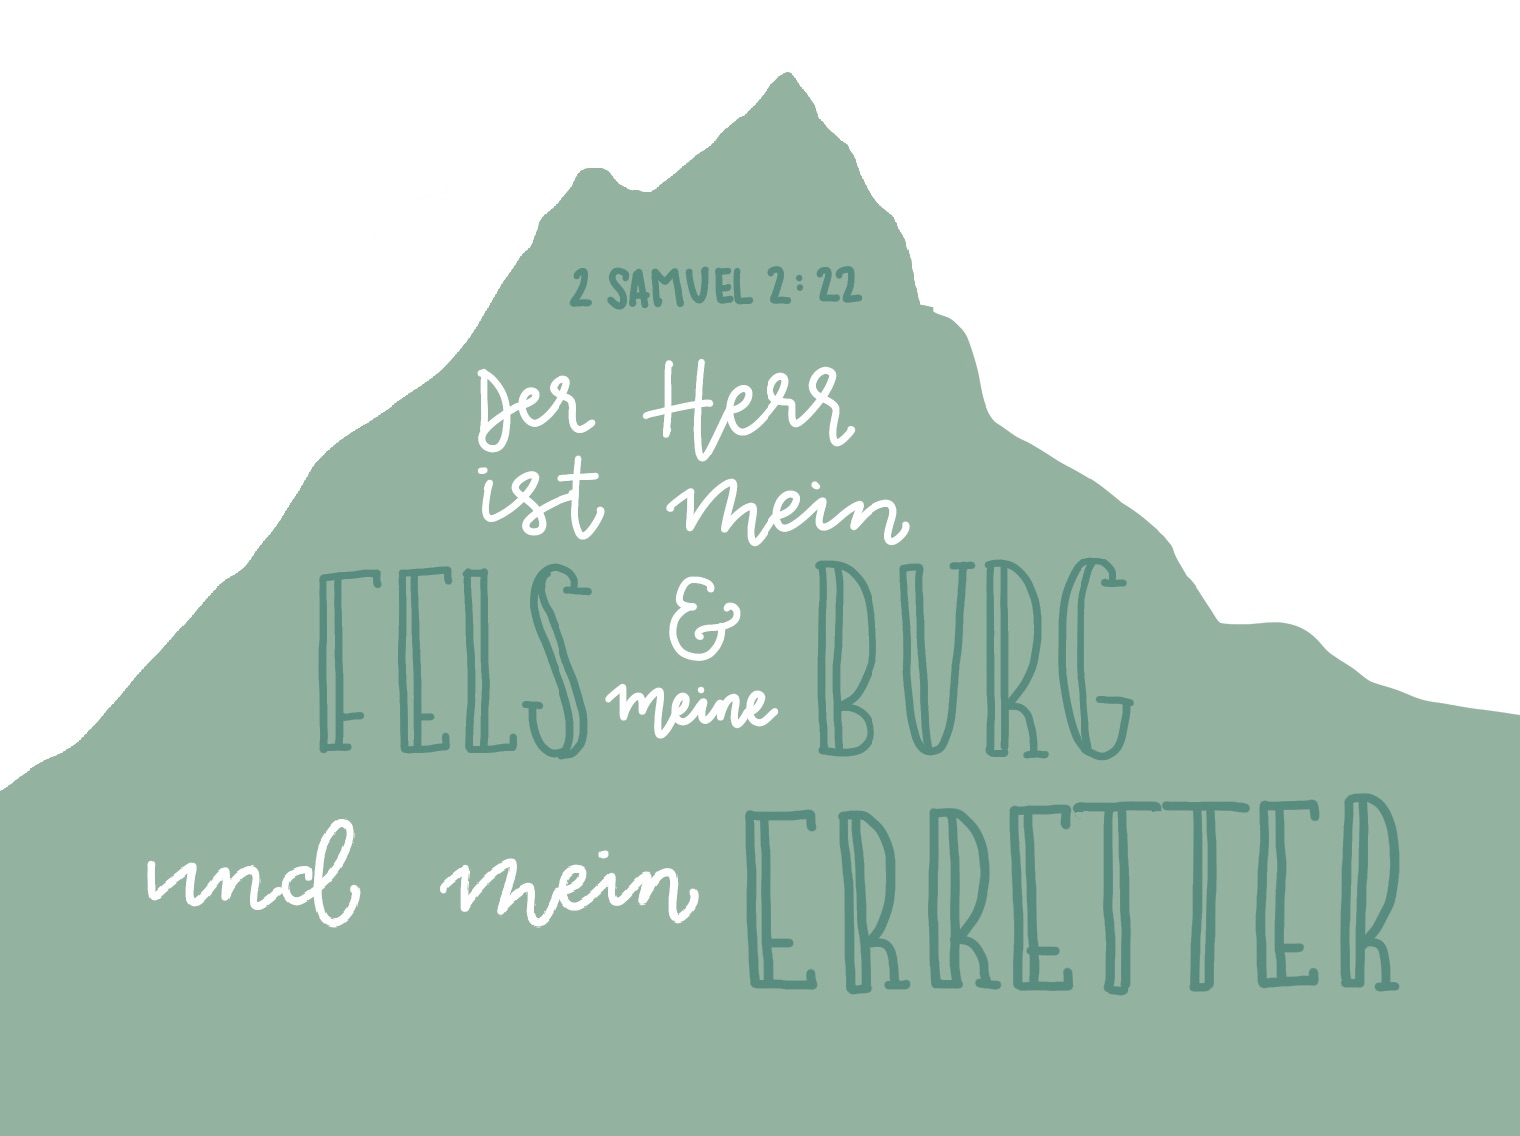 2 SAMUEL 2:22
Der Herr
ist mein
FELS & BURG
meine
und mein ERRETTER